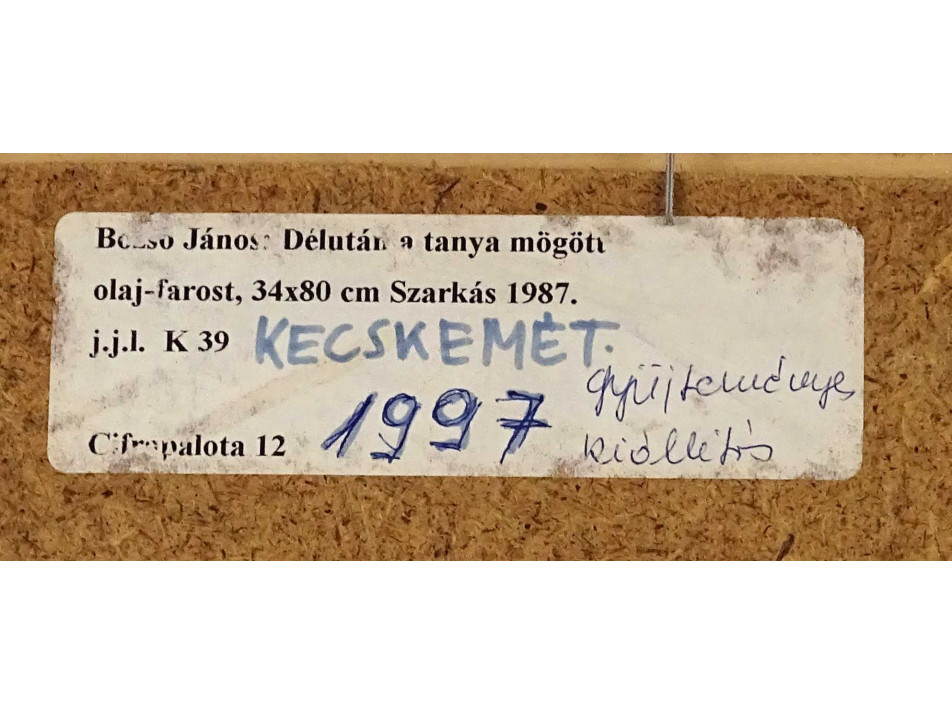 Bozsó János: Délután a tanya mögött
olaj-farost, 34x80 cm Szarkás 1987.
j.j.l. K 39 KECSKEMÉT.
gyűjteményes
Cifrapalota 12 1997 kiállítás